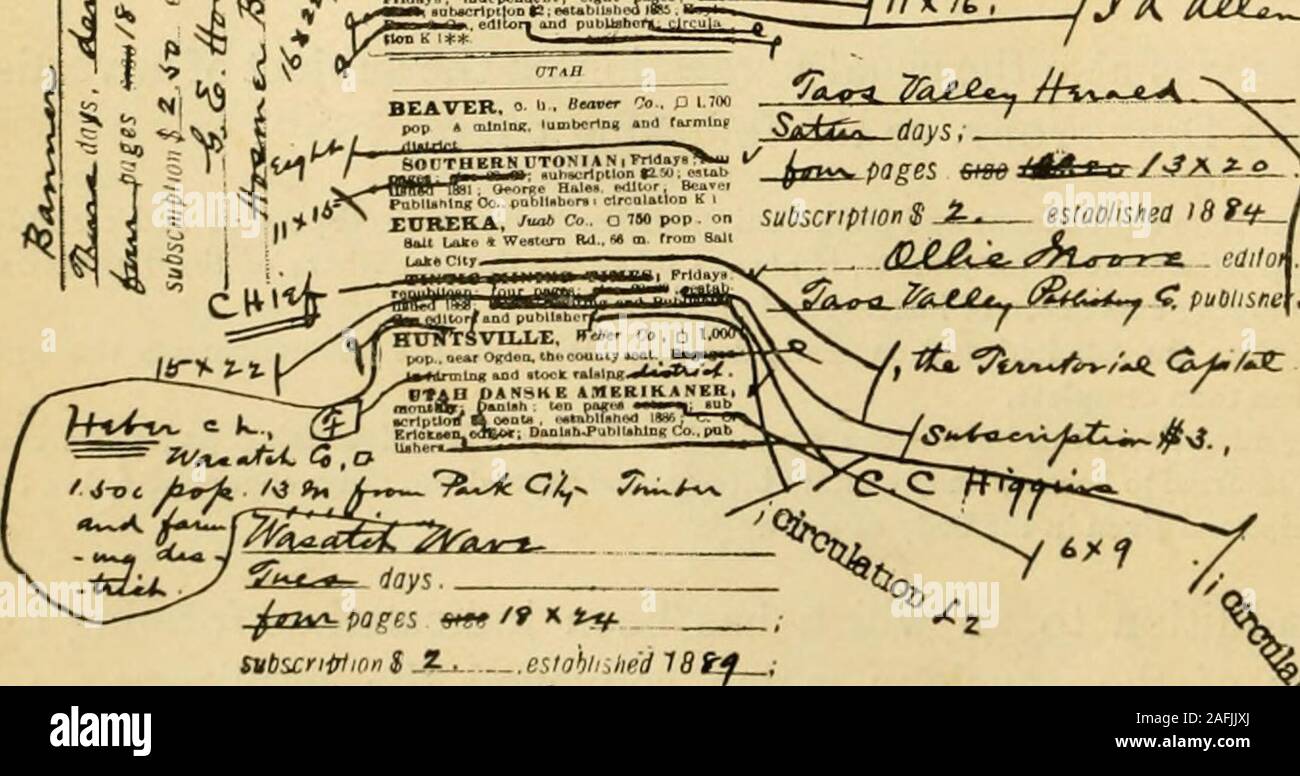 subscription $2; established 1885;
editor and publisher; circula
tion K 1**.
11 x 16.
Allen
Banner
Thurs days.
four pages
subscription $ 2.50
16 x 22
UTAH.
BEAVER, c. h., Beaver Co., □ 1,700
pop. A mining, lumbering and farming
district.
Eight
SOUTHERN UTONIAN; Fridays;
pages; subscription $2.50; estab-
lished 1881; George Hales, editor; Beaver
Publishing Co., publishers; circulation K 1
11 x 15
EUREKA, Juab Co., □ 750 pop. on
Salt Lake & Western Rd., 66 m. from Salt
Lake City.
TINTIC MINING TIMES; Fridays.
republican; four pages; estab-
lished 1888;
editor and publisher
CHief
HUNTSVILLE, Weber Co., □ 1,000
pop., near Ogden, the county seat. Engaged
in farming and stock raising district.
15 x 22
UTAH DANSKE AMERIKANER,
monthly; Danish; ten pages; sub
scription cents, established 1886; C. C.
Ericksen, editor; Danish Publishing Co., pub
lishers.
Taos Valley Herald
Satur days;
four pages size 13 x 20
subscription $ 2. established 1884
Ollie Moore editor,
Taos Valley Publishing C. publisher
, the Territorial Capital
Subscription $3.,
C. C Higgins
; circulation L2
6 x 9
; circula
Heber c h., F
Wasatch Co, □
1.50c pop. 13 m from Park City Timber
and farm
-ing dis-
-trict.
Wasatch Wave
Tues days.
four pages size 18 x 24 ;
subscription $ 2. , established 1889 ;
alamy
Image ID: 2AFJJXJ
www.alamy.com